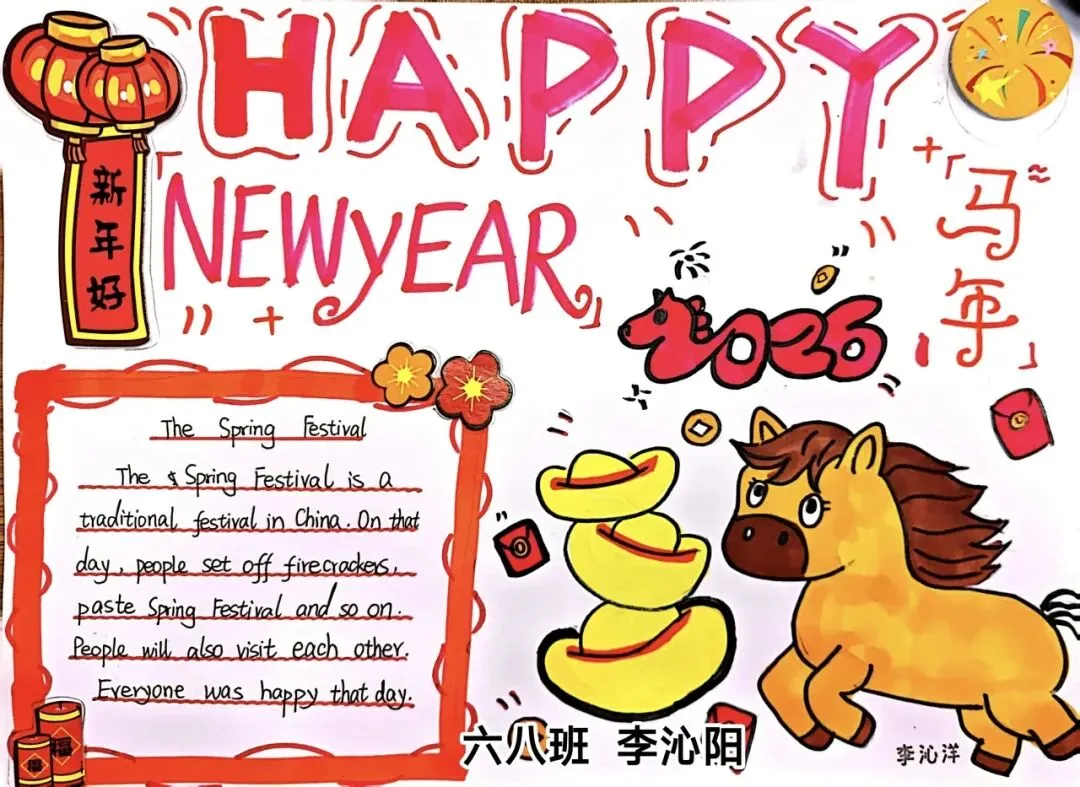 HAPPY
NEWYEAR
新年好
马年
2026
The Spring Festival
The & Spring Festival is a
traditional festival in China. On that
day, people set off firecrackers,
paste Spring Festival and so on.
People will also visit each other.
Everyone was happy that day.
福
福
六八班 李沁阳
李沁洋